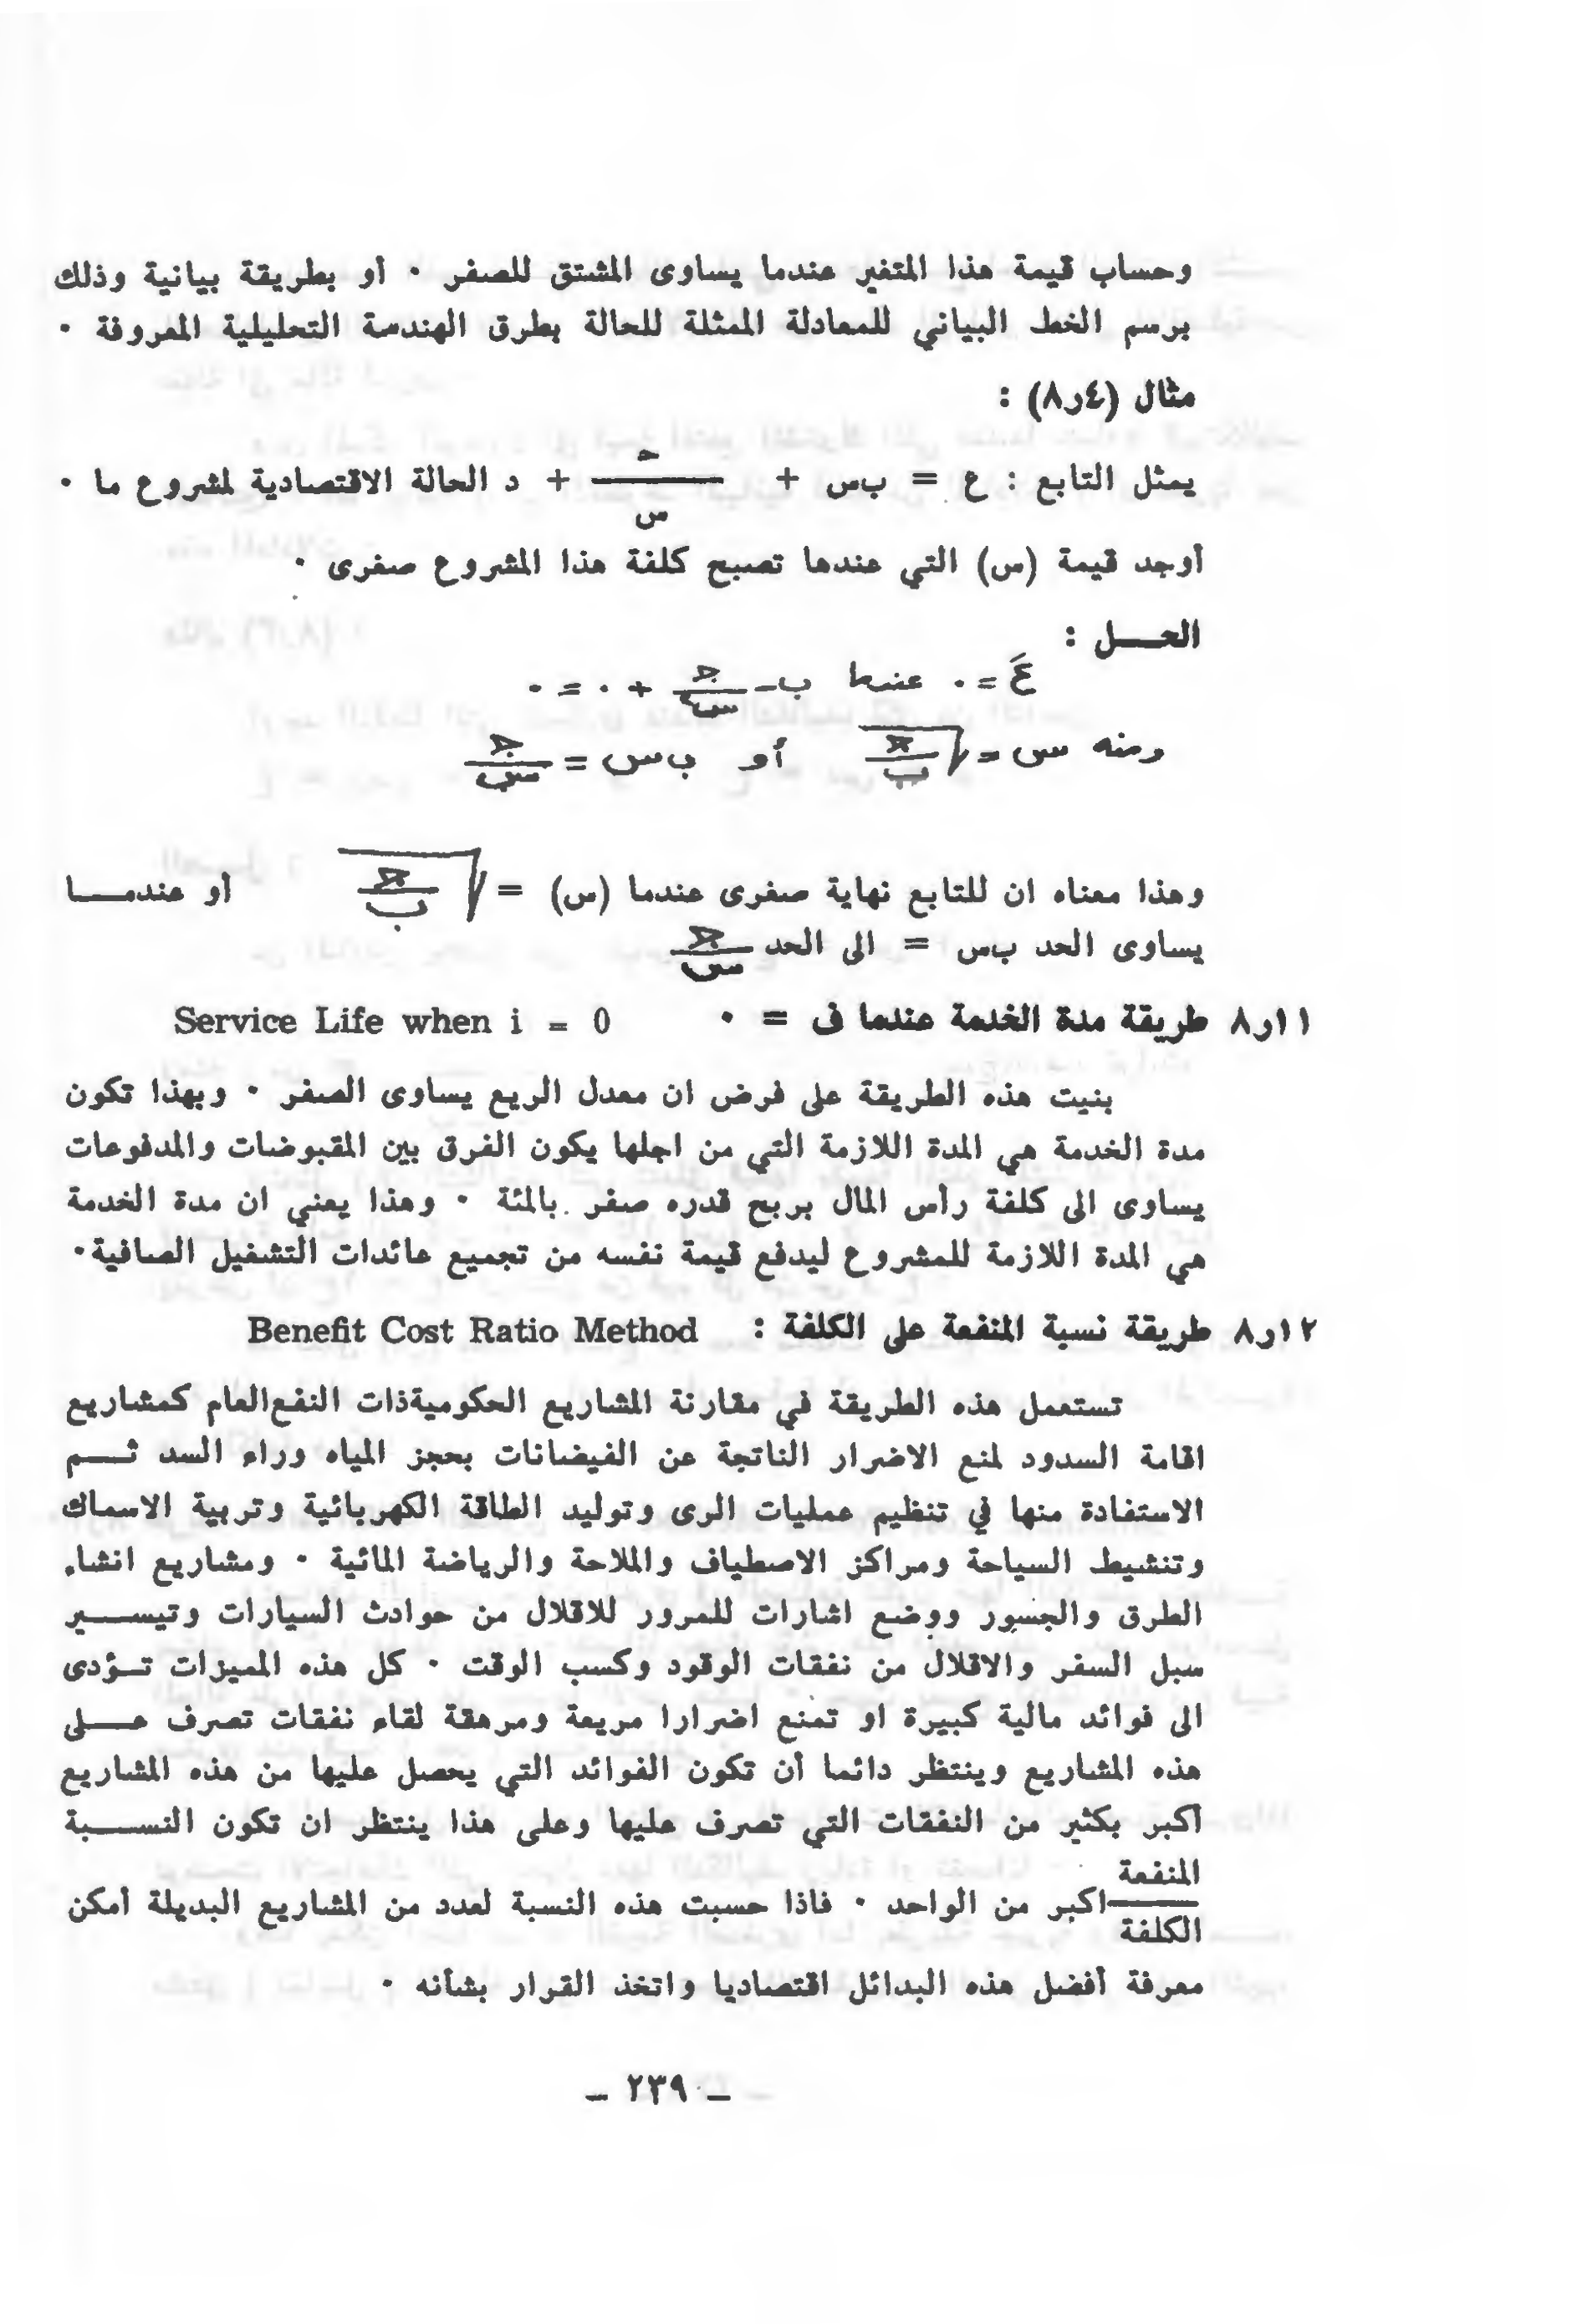 وحساب قيمة هذا المتغير عندما يساوى المشتق للصفر ٠ أو بطريقة بيانية وذلك
برسم الخط البياني للمعادلة الممثلة للحالة بطرق الهندسة التحليلية المعروفة ٠
مثال (٤ر٨) :
يمثل التابع : ع = ب س + حـ/س + د الحالة الاقتصادية لمشروع ما ٠
أوجد قيمة (س) التي عندها تصبح كلفة هذا المشروع صغرى ٠
الحـــل :
عَ = ٠ عندما ب - جـ/س٢ + ٠ = ٠
ومنه س = √(جـ/ب) أو ب س = جـ/س
وهذا معناه ان للتابع نهاية صغرى عندما (س) = √(جـ/ب) أو عندمـــا
يساوى الحد ب س = الى الحد جـ/س
١١ر٨ طريقة مدة الخدمة عندما ف = ٠ Service Life when i = 0
بنيت هذه الطريقة على فرض ان معدل الريع يساوى الصفر ٠ وبهذا تكون
مدة الخدمة هي المدة اللازمة التي من اجلها يكون الفرق بين المقبوضات والمدفوعات
يساوى الى كلفة رأس المال بربح قدره صفر بالمئة ٠ وهذا يعني ان مدة الخدمة
هي المدة اللازمة للمشروع ليدفع قيمة نفسه من تجميع عائدات التشغيل الصافية٠
١٢ر٨ طريقة نسبة المنفعة على الكلفة : Benefit Cost Ratio Method
تستعمل هذه الطريقة في مقارنة المشاريع الحكومية ذات النفع العام كمشاريع
اقامة السدود لمنع الاضرار الناتجة عن الفيضانات بحجز المياه وراء السد ثـــم
الاستفادة منها في تنظيم عمليات الرى وتوليد الطاقة الكهربائية وتربية الاسماك
وتنشيط السياحة ومراكز الاصطياف والملاحة والرياضة المائية ٠ ومشاريع انشاء
الطرق والجسور ووضع اشارات للمرور للاقلال من حوادث السيارات وتيســـير
سبل السفر والاقلال من نفقات الوقود وكسب الوقت ٠ كل هذه المميزات تــؤدى
الى فوائد مالية كبيرة او تمنع اضرارا مريعة ومرهقة لقاء نفقات تصرف عـــلى
هذه المشاريع وينتظر دائما أن تكون الفوائد التي يحصل عليها من هذه المشاريع
أكبر بكثير من النفقات التي تصرف عليها وعلى هذا ينتظر ان تكون النســـبة
المنفعة/الكلفة اكبر من الواحد ٠ فاذا حسبت هذه النسبة لعدد من المشاريع البديلة أمكن
معرفة أفضل هذه البدائل اقتصاديا واتخذ القرار بشأنه ٠
– ٢٣٩ –